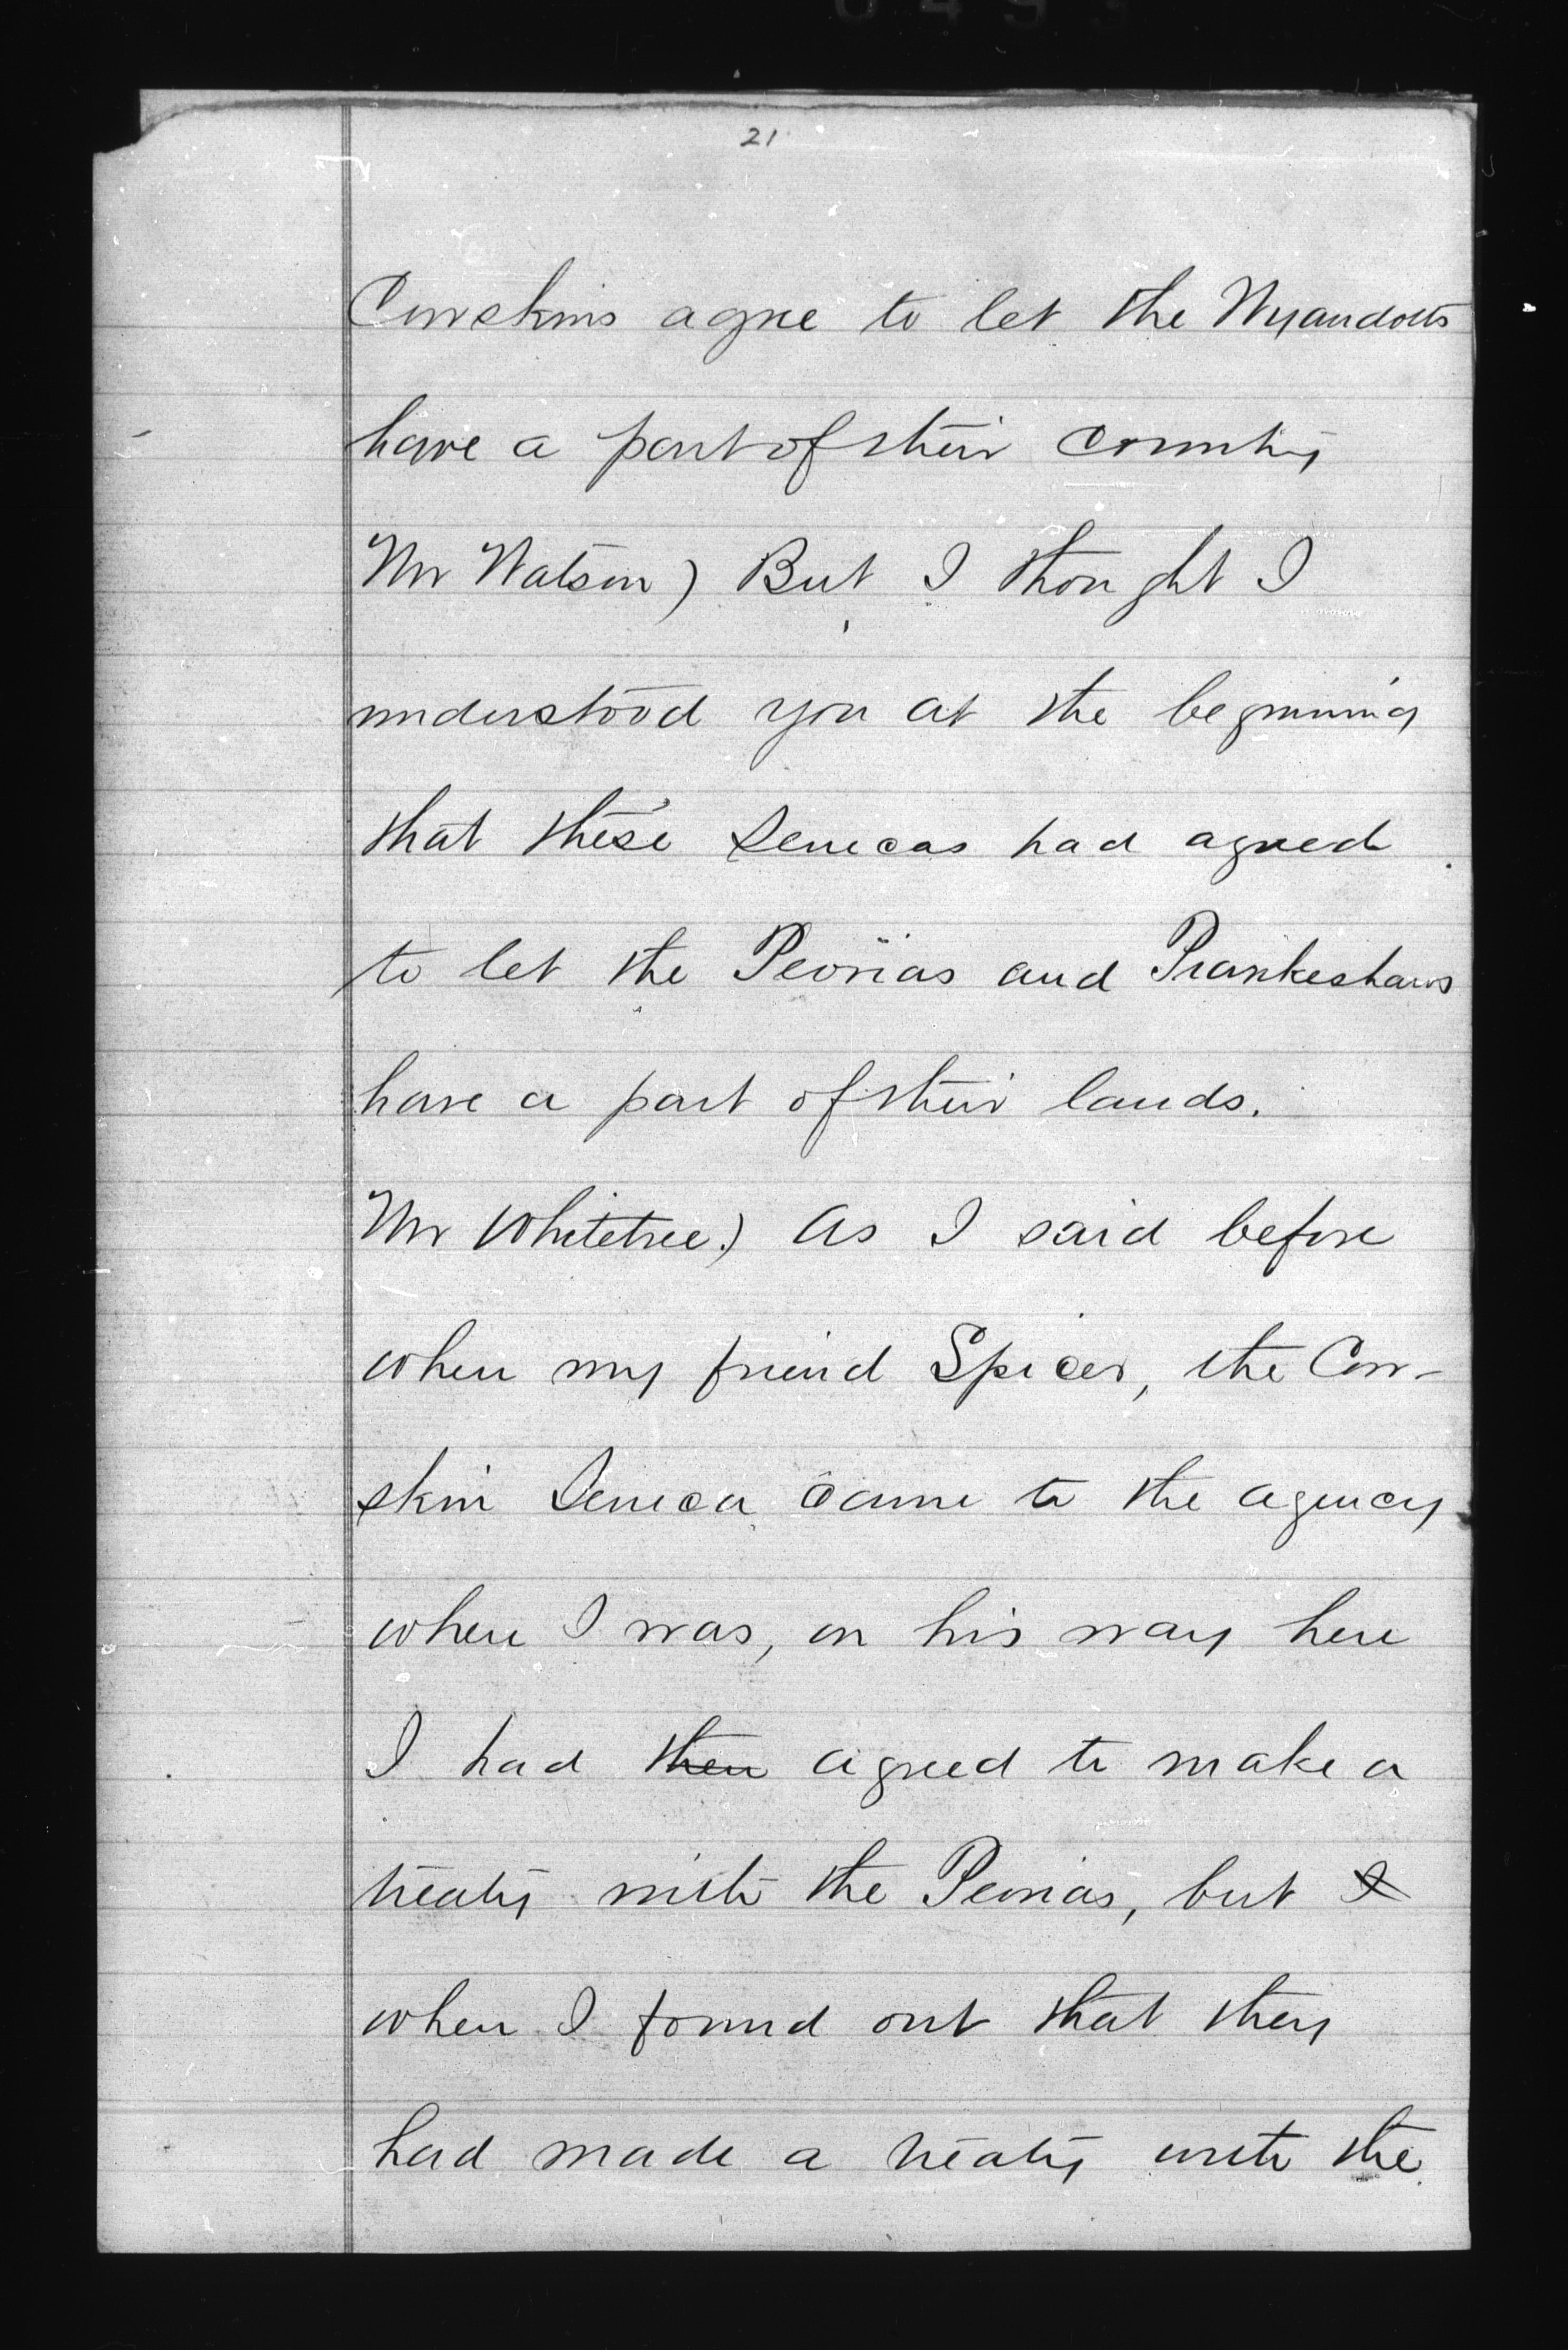 0493
21
Cowskins agree to let the Wyandotts
have a part of their country
Mr Watson) But I thought I
understood you at the beginning
that these Senecas had agreed
to let the Peorias and Piankeshaws
have a part of their lands.
Mr Whitetree.) As I said before
when my friend Spicer, the Cow-
skin Seneca came to the agency
where I was, on his way here
I had then agreed to make a
treaty with the Peorias, but I
when I found out that they
had made a treaty with the